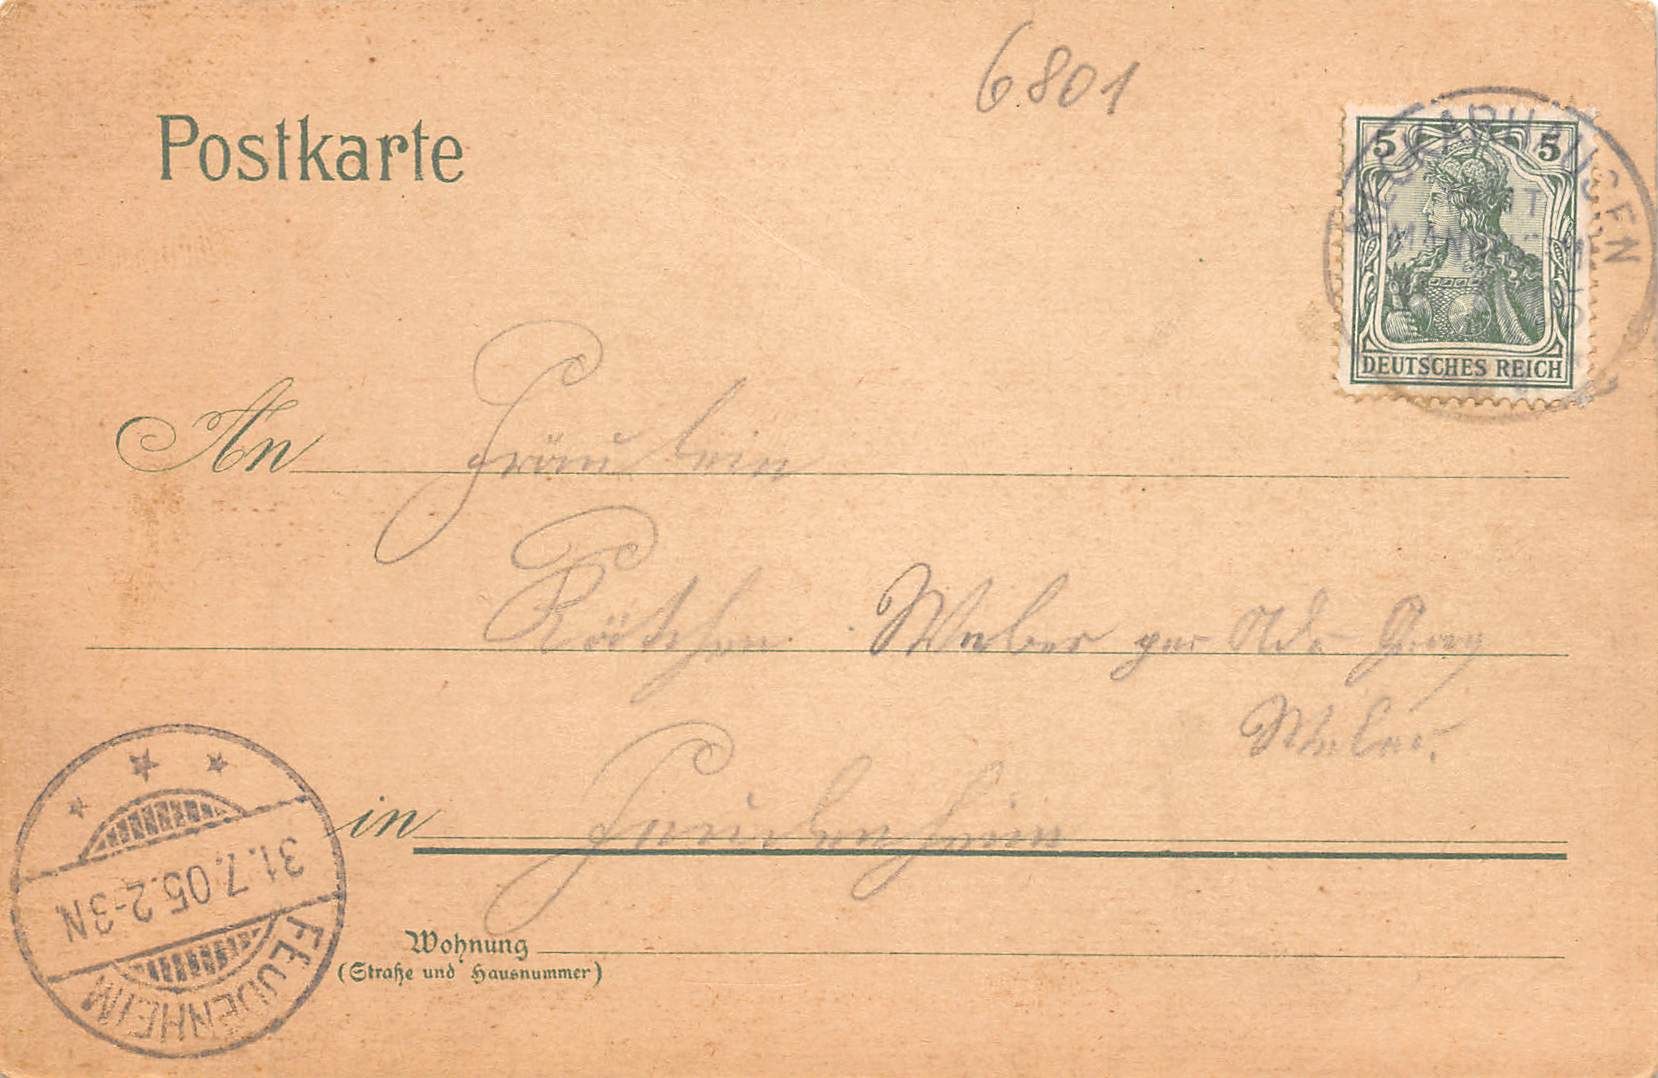 6801
Postkarte
5 5
NECKARHAUSEN
DEUTSCHES REICH
An Fräulein
Käthchen Weber per Ad. Georg
Weber.
in Feudenheim
31.7.05.2-3N
FEUDENHEIM
Wohnung
(Straße und Hausnummer)